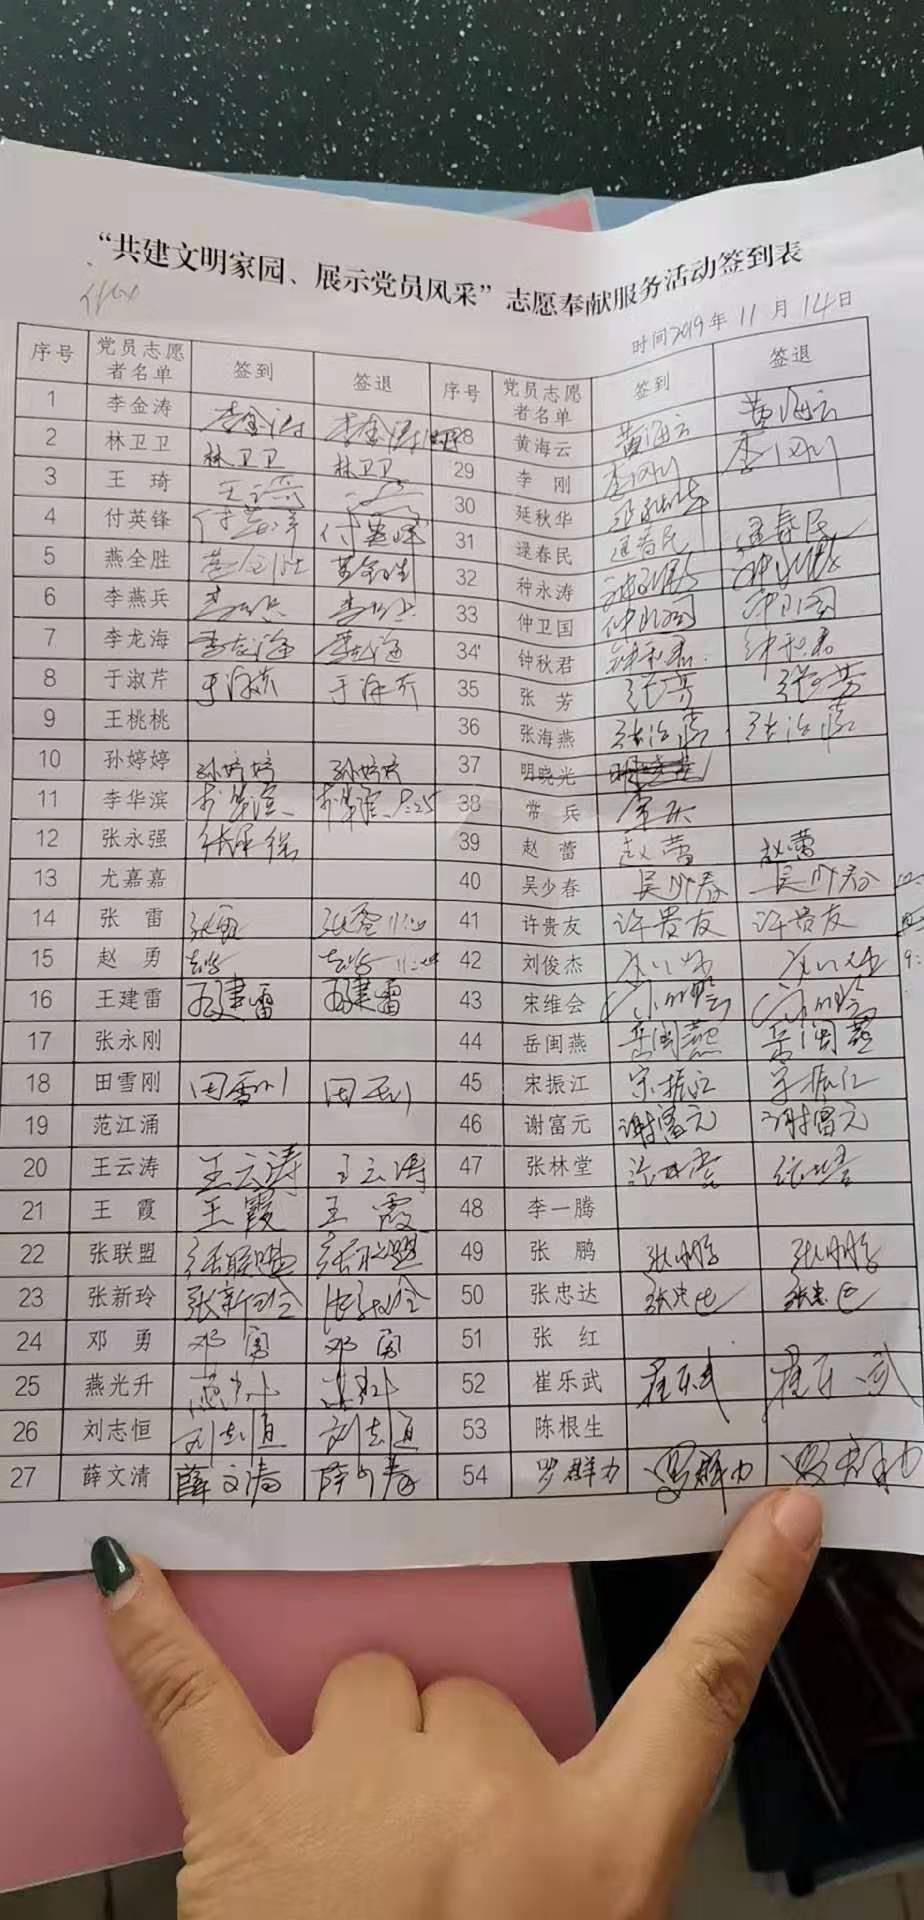 “共建文明家园、展示党员风采”志愿奉献服务活动签到表
时间2019年11月14日
序号 党员志愿者名单 签到 签退 序号 党员志愿者名单 签到 签退
1 李金涛 李金涛 李金涛 28 黄海云 黄海云 黄海云
2 林卫卫 林卫卫 林卫卫 29 李刚 李刚 李刚
3 王琦 30 延秋华 延秋华
4 付英锋 付英锋 付英锋 31 逯春民 逯春民 逯春民
5 燕全胜 燕全胜 燕全胜 32 种永涛 种永涛 种永涛
6 李燕兵 李燕兵 李燕兵 33 仲卫国 仲卫国 仲卫国
7 李龙海 李龙海 李龙海 34 钟秋君 钟秋君 钟秋君
8 于淑芹 于淑芹 于淑芹 35 张芳 张芳 张芳
9 王桃桃 36 张海燕 张海燕 张海燕
10 孙婷婷 孙婷婷 孙婷婷 37 明晓光
11 李华滨 李华滨 李华滨 8:25 38 常兵 常兵
12 张永强 张永强 39 赵蕾 赵蕾 赵蕾
13 尤嘉嘉 40 吴少春 吴少春 吴少春
14 张雷 张雷 张雷 41 许贵友 许贵友 许贵友
15 赵勇 赵勇 赵勇 42 刘俊杰
16 王建雷 王建雷 王建雷 43 宋维会
17 张永刚 44 岳闽燕 岳闽燕 岳闽燕
18 田雪刚 田雪刚 田雪刚 45 宋振江 宋振江 宋振江
19 范江涌 46 谢富元 谢富元 谢富元
20 王云涛 王云涛 王云涛 47 张林堂 张林堂 张林堂
21 王霞 王霞 王霞 48 李一腾
22 张联盟 张联盟 张联盟 49 张鹏 张鹏 张鹏
23 张新玲 张新玲 张新玲 50 张忠达 张忠达 张忠达
24 邓勇 邓勇 邓勇 51 张红
25 燕光升 燕光升 燕光升 52 崔乐武 崔乐武 崔乐武
26 刘志恒 刘志恒 刘志恒 53 陈根生
27 薛文清 薛文清 薛文清 54 罗群力 罗群力 罗群力